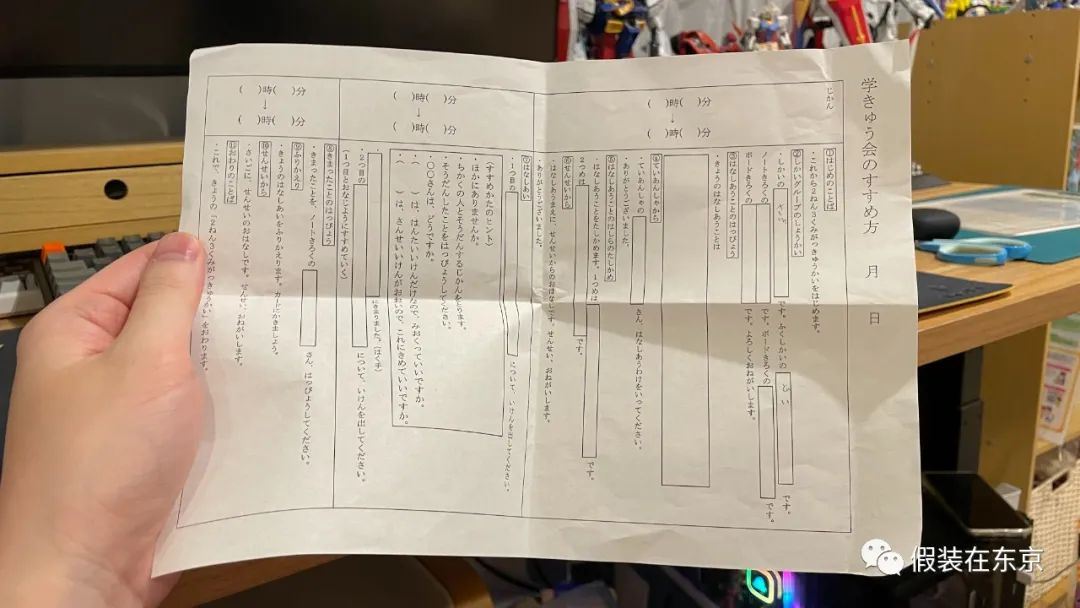 学きゅう会のすすめ方　月　日
じかん
(　)時(　)分
↓
(　)時(　)分
①はじめのことば
・これから２ねん３くみがっきゅうかいをはじめます。
②しかいグループのしょうかい
・しかいの　です。ふくしかいの　です。
ノートきろくの　です。ボードきろくの　です。
ボードきろくの　です。よろしくおねがいします。
③はなしあうことのはっぴょう
・きょうのはなしあうことは
④ていあんしゃから
・ていあんしゃの　さん、はなしあうわけをいってください。
・ありがとうございました。
⑤はなしあうことのはしらのたしかめ
・はなしあうことをたしかめます。１つめは　です。
２つめは　です。
⑥せんせいから
・はなしあうまえに、せんせいからのおはなしです。せんせい、おねがいします。
・ありがとうございました。
(　)時(　)分
↓
(　)時(　)分
⑦はなしあい
・１つ目の　について、いけんを出してください。
(すすめかたのヒント)
・ほかにありませんか。
・ちかくの人とそうだんするじかんをとります。
・そうだんしたことをはっぴょうしてください。
・〇〇さんは、どうですか。
・(　)は、はんたいいけんだけなので、みおくっていいですか。
・(　)は、さんせいいけんがおおいので、これにきめていいですか。
・　にきまりました。(はく手)
・２つ目の　について、いけんを出してください。
(１つ目とおなじようにすすめていく)
(　)時(　)分
↓
(　)時(　)分
⑧きまったことのはっぴょう
・きまったことを、ノートきろくの　さん、はっぴょうしてください。
⑨ふりかえり
・きょうのはなしあいをふりかえります。カードにかきましょう。
⑩せんせいから
・さいごに、せんせいのおはなしです。せんせい、おねがいします。
⑪おわりのことば
・これで、きょうの「２ねん３くみがっきゅうかい」をおわります。
假装在东京